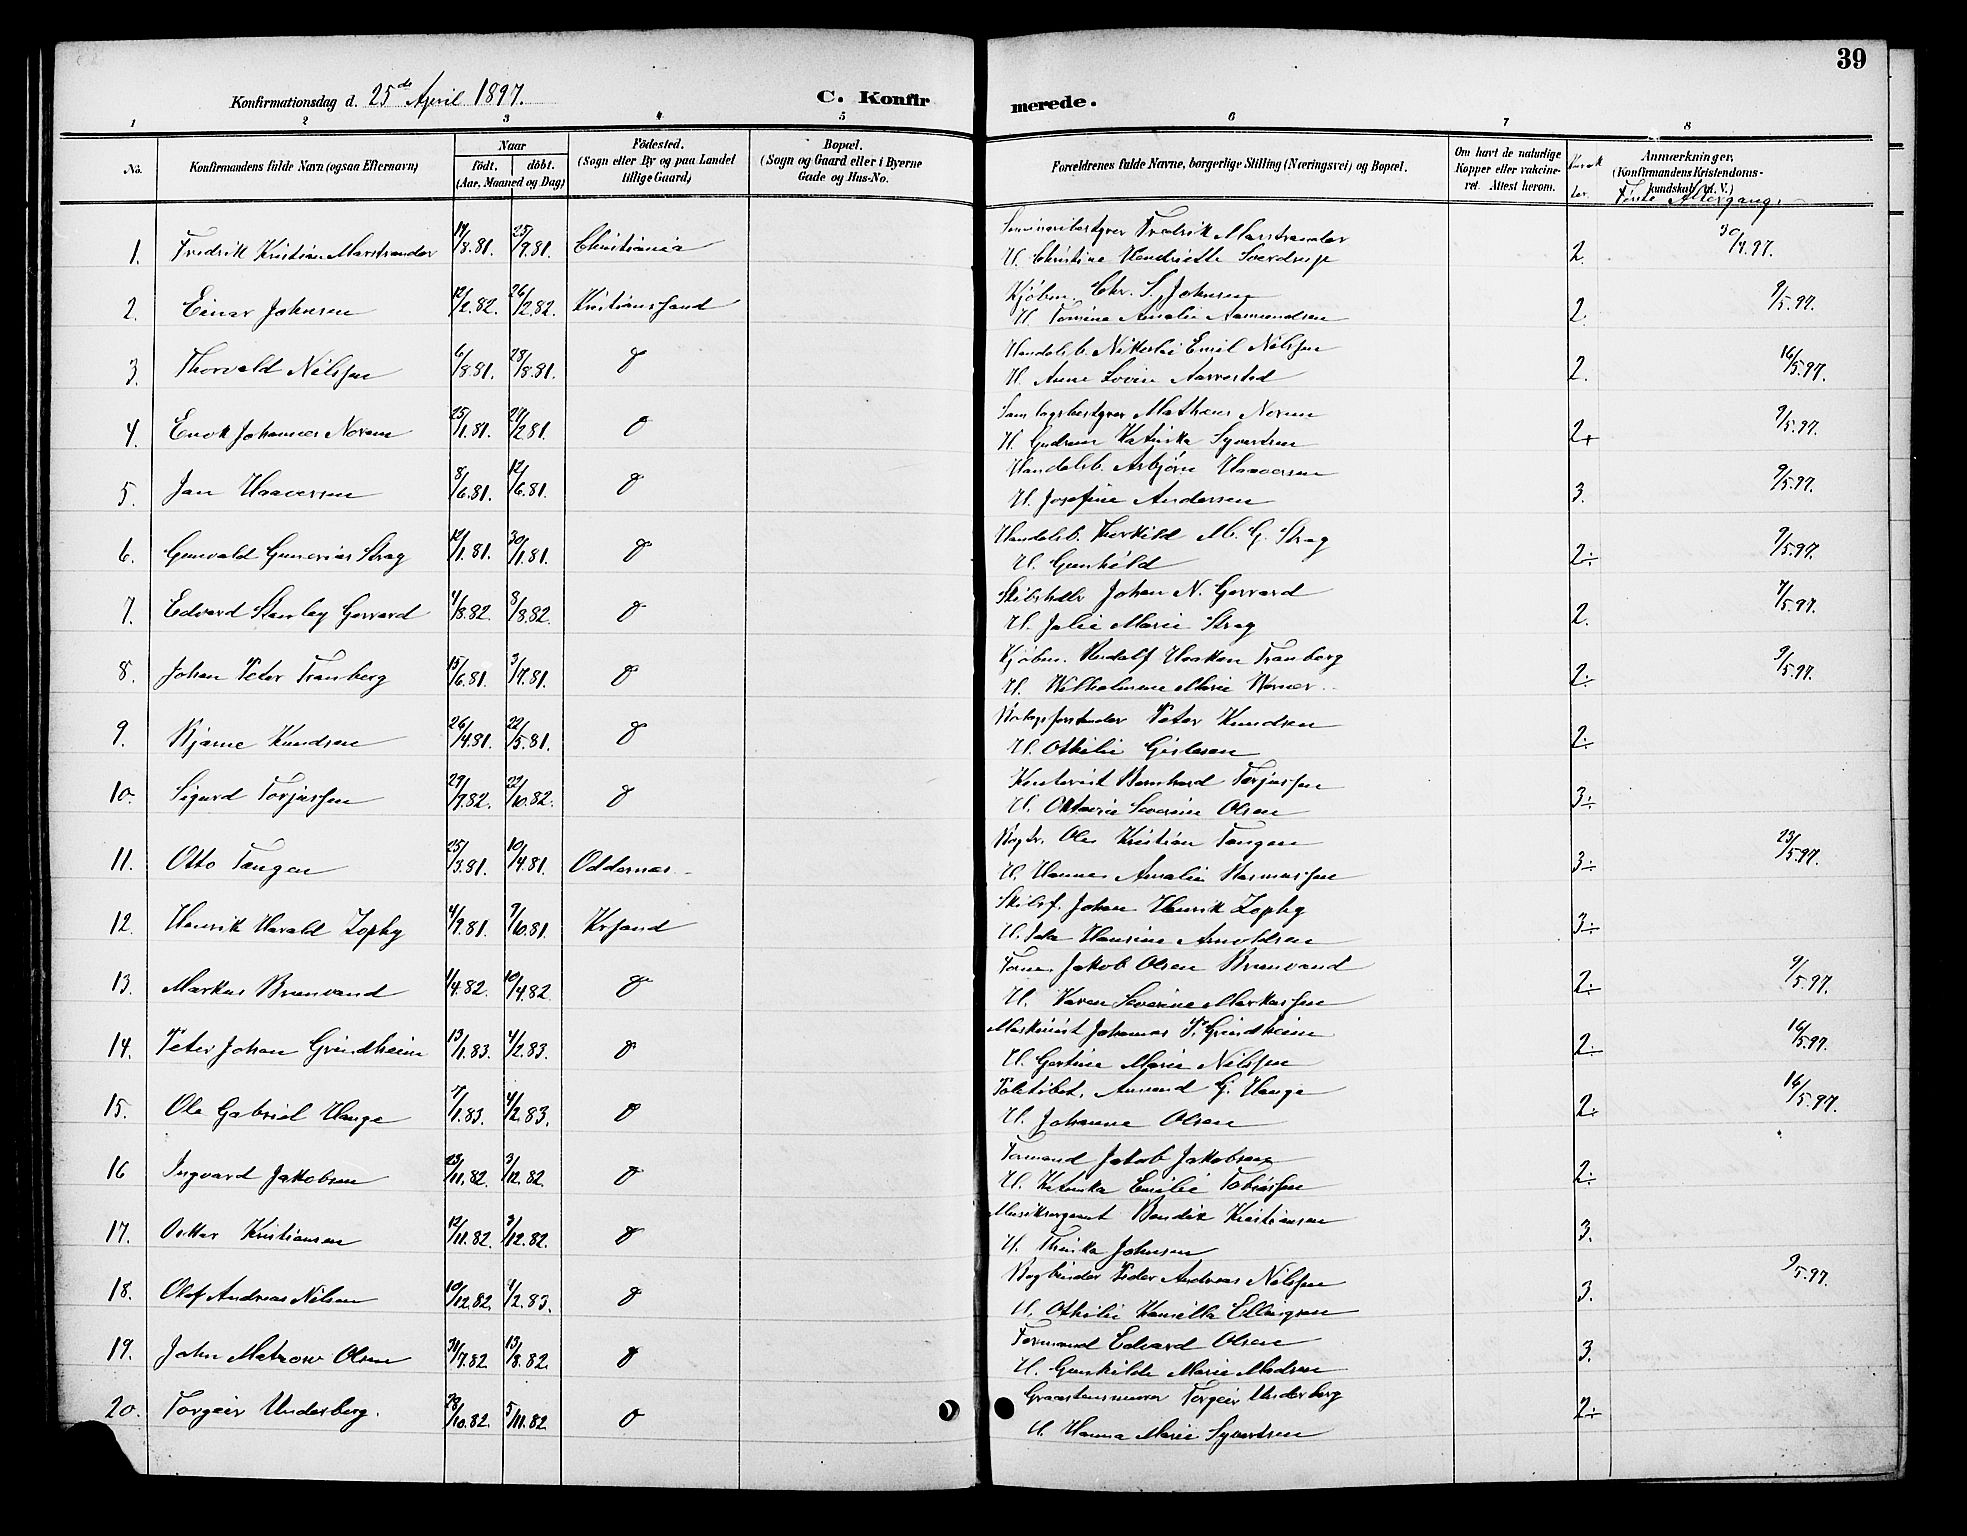 39
Konfirmationsdag d. 25de April 1897.
C. Konfirmerede.
1 2 3 4 5 6 7 8
No.
Konfirmandens fulde Navn (ogsaa Efternavn)
Naar
födt. döbt.
(Aar, Maaned og Dag)
Födested.
(Sogn eller By og paa Landet
tillige Gaard)
Bopæl.
(Sogn og Gaard eller i Byerne
Gade og Hus-No.
Forældrenes fulde Navne, borgerlige Stilling (Næringsvei) og Bopæl.
Om havt de naturlige
Kopper eller vakcine-
ret. Attest herom.
Anmærkninger.
(Konfirmandens Kristendoms-
kundskab m. V.)
Første Altergang.
1. Fredrik Kristian Marstrander 14/8.81. 25/9.81. Christiania Fredrik Marstrander 2. 30/4.97.
H. Christine Henriette Sverdrup
2. Einar Johnsen 12/2.82. 26/2.82. Kristianssand Kjøbm. Chr. S. Johnsen 2. 9/5.97.
H. Tomine Amalie Aamundsen
3. Thorvald Nilssen 6/8.81. 28/8.81. Handelsb. Emil Nilssen 2. 16/5.97.
H. Anne Lovise Aarrestad
4. Enok Johannes Norum 25/1.81. 27/2.81. Samlagsbestyrer Mathæus Norum 2+ 9/5.97.
H. Gudrun Katinka Syvertsen
5. Jan Haaversen 8/6.81. 12/6.81. Handelsb. Asbjørn Haaversen 3. 9/5.97.
H. Josefine Andersen
6. Gunvald Gunerius Stray 12/1.81. 30/1.81. Handelsb. Therkild M. G. Stray 2÷ 9/5.97.
H. Gunhild
7. Edvard Stanley Gerrard 4/8.82. 8/8.82. Johan N. Gerrard 2. 7/5.97.
H. Julie Marie Stray
8. Johan Peter Tranberg 15/6.81. 3/7.81. Kjøbm. Rudolf Haakon Tranberg 2÷ 9/5.97.
H. Wilhelmine Marie Werner
9. Bjarne Knudsen 26/4.81. 22/5.81. Peter Knudsen 2÷
H. Othilie Gislesen
10. Sigurd Torjussen 29/7.82. 22/10.82. Kontorist Bernhard Torjussen 3÷
H. Oktavia Severine Olsen
11. Otto Tangen 25/3.81. 10/4.81. Oddernæs Ole Kristian Tangen 3÷ 23/5.97.
H. Hanna Amalie Rasmussen
12. Henrik Harald Zophy 4/9.81. 9/10.81. Krsand Skibsf. Johan Henrik Zophy 3÷
H. Hansine Arnoldsen
13. Markus Brunvand 1/4.82. 10/4.82 Jakob Olsen Brunvand 2÷ 9/5.97.
H. Karen Severine Markussen
14. Peter Johan Grindheim 13/1.83. 4/2.83. Maskinist Johannes P. Grindheim 2÷ 16/5.97.
H. Gertine Marie Nilssen
15. Ole Gabriel Hauge 7/1.83. 4/2.83. Politibet. Aanund G. Hauge 2÷ 16/5.97.
H. Johanne Olsen
16 Ingvard Jakobsen 23/11.82. 3/12.82. Formand Jakob Jakobsen 2÷
H. Katinka Emilie Tobiassen
17. Oskar Kristiansen 12/11.82. 3/12.82. Musiksergeant Bendix Kristiansen 3.
H. Thrinka Johnsen
18. Olof Andreas Nilsen 10/12.82. 4/2.83. Bogbinder Peder Andreas Nilssen 3. 9/5.97.
H. Othilie Ellingsen
19. John Olsen 31/7.82 13/8.82. Formand Edvard Olsen 3.
H. Gunhilde Marie Madsen
20. Torgeir Underberg. 28/10.82. 5/11.82 Graastensmurer Torgeir Underberg 2÷
H. Hanna Marie Syvertsen